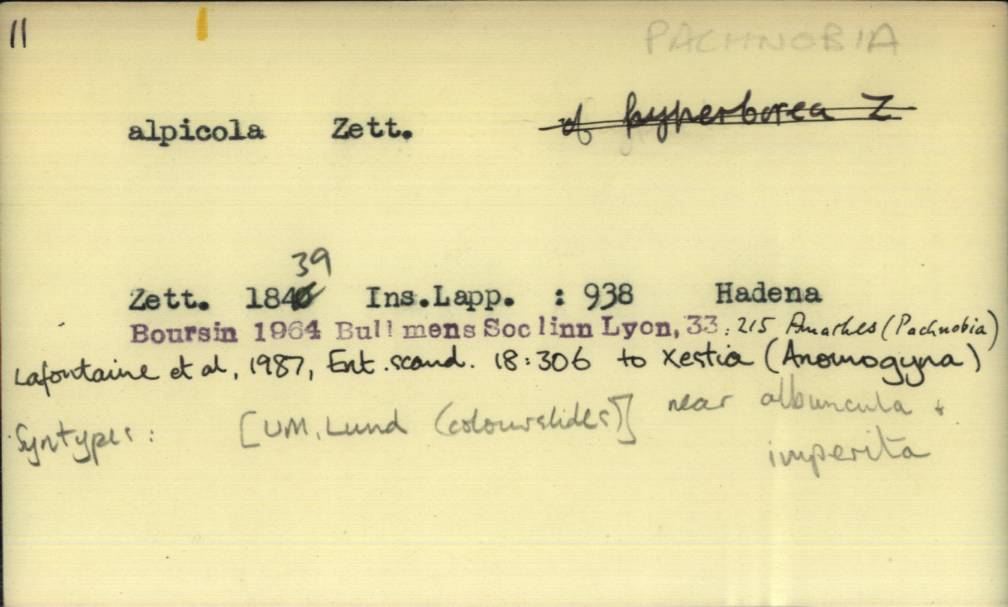 11
PACHNOBIA
alpicola Zett. of hyperborea Z
39
Zett. 1840 Ins.Lapp. : 938 Hadena
Boursin 1964 Bull mens Soc linn Lyon, 33: 215 Amathes (Pachnobia)
Lafontaine et al, 1987, Ent. scand. 18:306 to Xestia (Anomogyna)
Syntypes: [UM, Lund (colourslides)] near albuncula +
imperita